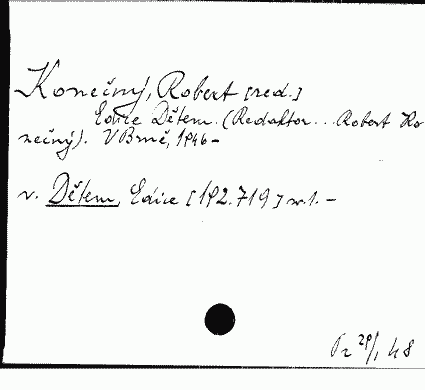 Konečný, Robert [red.]
Edice Dětem. (Redaktor... Robert Ko
nečný). V Brně, 1946-
v. Dětem, Edice [192.719] sv. 1. -
29/1 48